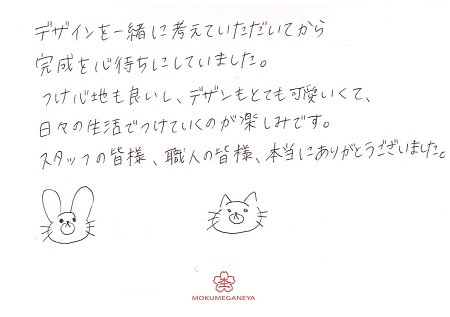 デザインを一緒に考えていただいてから
完成を心待ちにしていました。
つけ心地も良いし、デザインもとても可愛いくて、
日々の生活でつけていくのが楽しみです。
スタッフの皆様、職人の皆様、本当にありがとうございました。
MOKUMEGANEYA